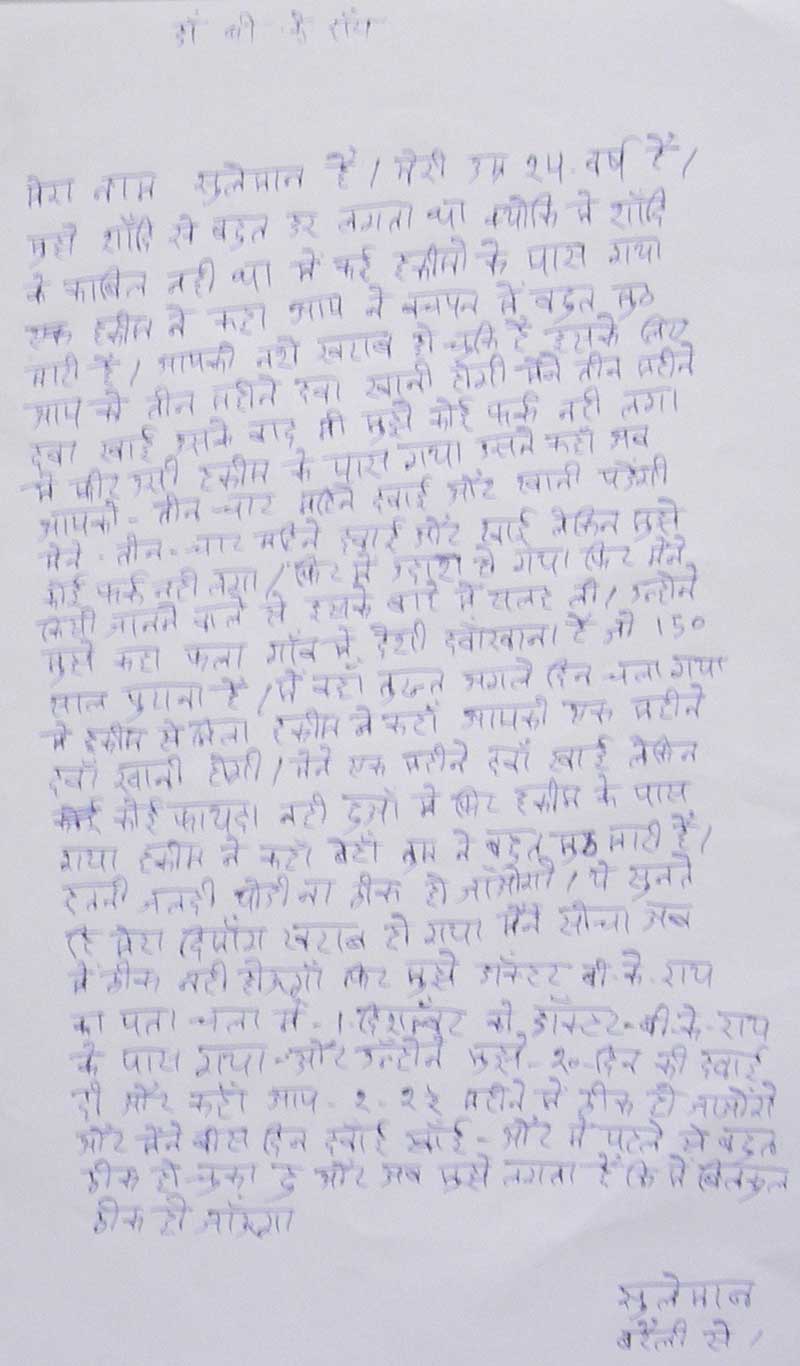 डॉ बी के रॉय
मेरा नाम सुलेमान है। मेरी उम्र २५ वर्ष है।
मुझे शाँदि से बहुत डर लगता था क्योकि मे शाँदि
के काबिल नही था में कई हकीमो के पास गया
एक हकीम ने कहा आप ने बचपन में बहुत मुठ
मारी है। आपकी नशे खराब हो चुकि है इसके लिए
आप को तीन महीने दवा खानी होगी मेने तीन महीने
दवा खाई उसके बाद भी मुझे कोई फर्क नही लगा
में फीर उसी हकीम के पास गया उसने कहाँ अब
आपको - तीन - चार महिने दवाई और खानी पडेगी
मेने - तीन - चार महिने दवाई और खाई लेकिन मुझे
कोई फर्क नही लगा। फिर में उदास हो गया फिर मेने
किसी जानने वाले से इसके बारे में सलह ली। उन्होने
मुझे कहा फला गाँव में देशी दवाँखाना है जो 150
साल पुराना है। में वहाँ तुरन्त अगले दिन चला गया
में हकीम से मिला हकीम ने कहाँ आपको एक महीने
दवाँ खानी होगी। मेने एक महीने दवाँ खाई लेकिन
कोई फायदा नही हुआँ में फिर हकीम के पास
गया हकीम ने कहाँ बेटाँ तुम ने बहुत मुठ मारी है।
इतनी जलदी थोडी ना ठीक हो जाँओगे। ये सुनते
हि मेरा दिमाँग खराब हो गया मैंने सोचा अब
में ठीक नही होऊगाँ फिर मुझे डॉक्टर बी-के-राय
का पता चला में - 1 दिसम्बर को डॉक्टर-बी-के-राय
के पास गया - और उन्होने मुझे - २० - दिन की दवाई
दी और कहाँ आप - २ - २½ महीने में ठीक हो जाओंगे
और मेंने बीस दिन दवाँई खाँई - और में पहले से बहुत
ठीक हो चुका हु और अब मुझे लगता है कि में बिलकुल
ठीक हो जाँऊगा
सुलेमान
बरैली से।